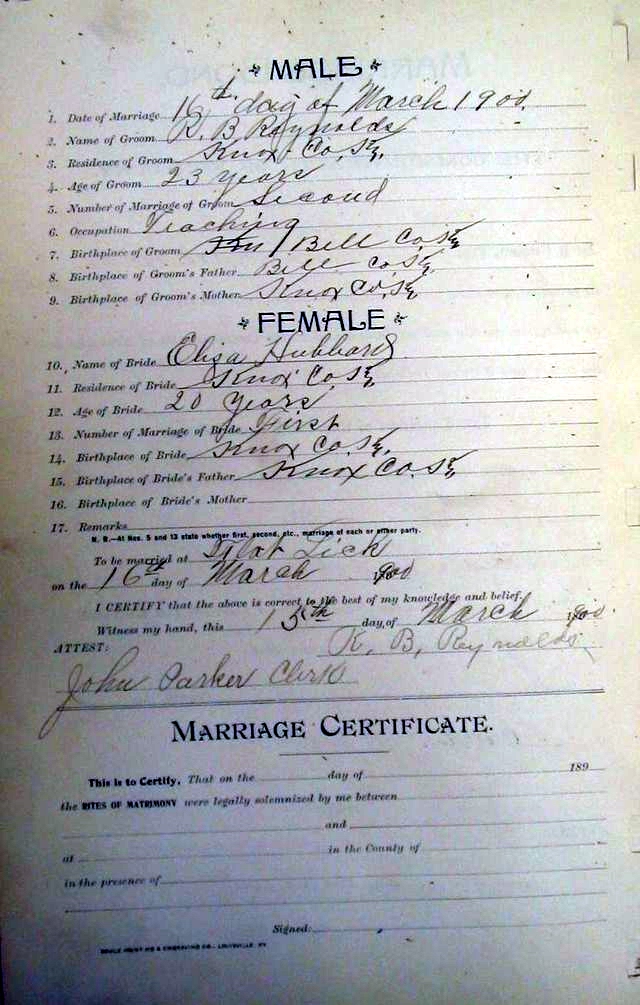 MALE
1. Date of Marriage 16th day of March 1900.
2. Name of Groom R. B Reynolds
3. Residence of Groom Knox Co, Ky,
4. Age of Groom 23 years
5. Number of Marriage of Groom Second
6. Occupation Teaching
7. Birthplace of Groom Bell Co, Ky
8. Birthplace of Groom's Father Bell Co Ky,
9. Birthplace of Groom's Mother Knox Co, Ky
FEMALE
10. Name of Bride Elisa Hubbard
11. Residence of Bride Knox Co Ky
12. Age of Bride 20 years
13. Number of Marriage of Bride First
14. Birthplace of Bride Knox Co. Ky,
15. Birthplace of Bride's Father Knox Co. Ky
16. Birthplace of Bride's Mother
17. Remarks
N. B.—At Nos. 5 and 13 state whether first, second, etc., marriage of each or either party.
To be married at Flat Lick
on the 16th day of March 1900
I CERTIFY that the above is correct to the best of my knowledge and belief.
Witness my hand, this 15th day of March 1900.
ATTEST: R. B, Reynolds
John Parker Clerk
MARRIAGE CERTIFICATE.
This is to Certify, That on the day of 189
the RITES OF MATRIMONY were legally solemnized by me between
and
at in the County of
in the presence of
Signed:
PRINTING & ENGRAVING CO., LOUISVILLE, KY